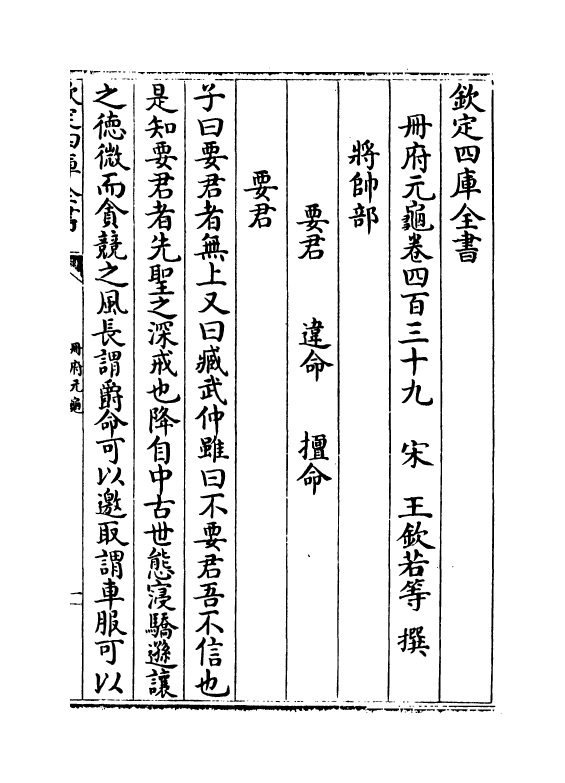 欽定四庫全書
冊府元龜卷四百三十九　宋　王欽若等　撰
將帥部
要君　違命　擅命
要君
子曰要君者無上又曰臧武仲雖曰不要君吾不信也
是知要君者先聖之深戒也降自中古世態寖驕遜讓
之徳微而貪競之風長謂爵命可以邀取謂車服可以
冊府元龜
一